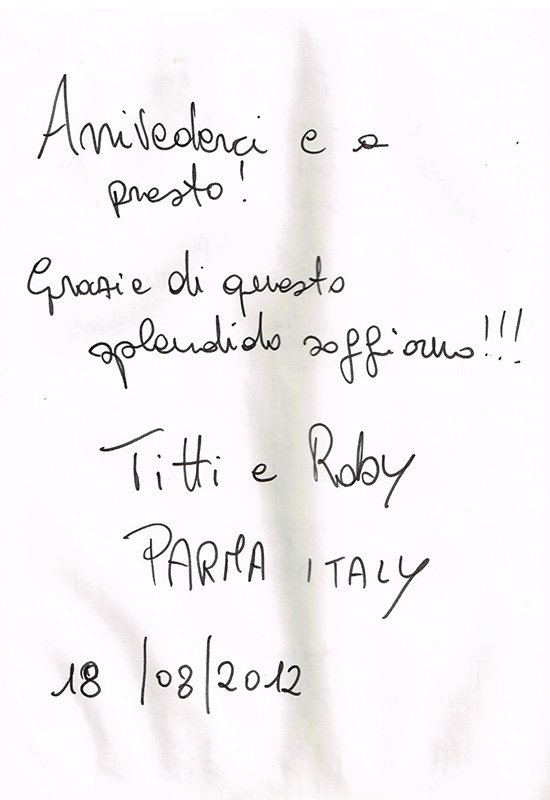 Arrivederci e a
presto!
Grazie di questo
splendido soggiorno!!!
Titti e Roby
PARMA ITALY
18/08/2012